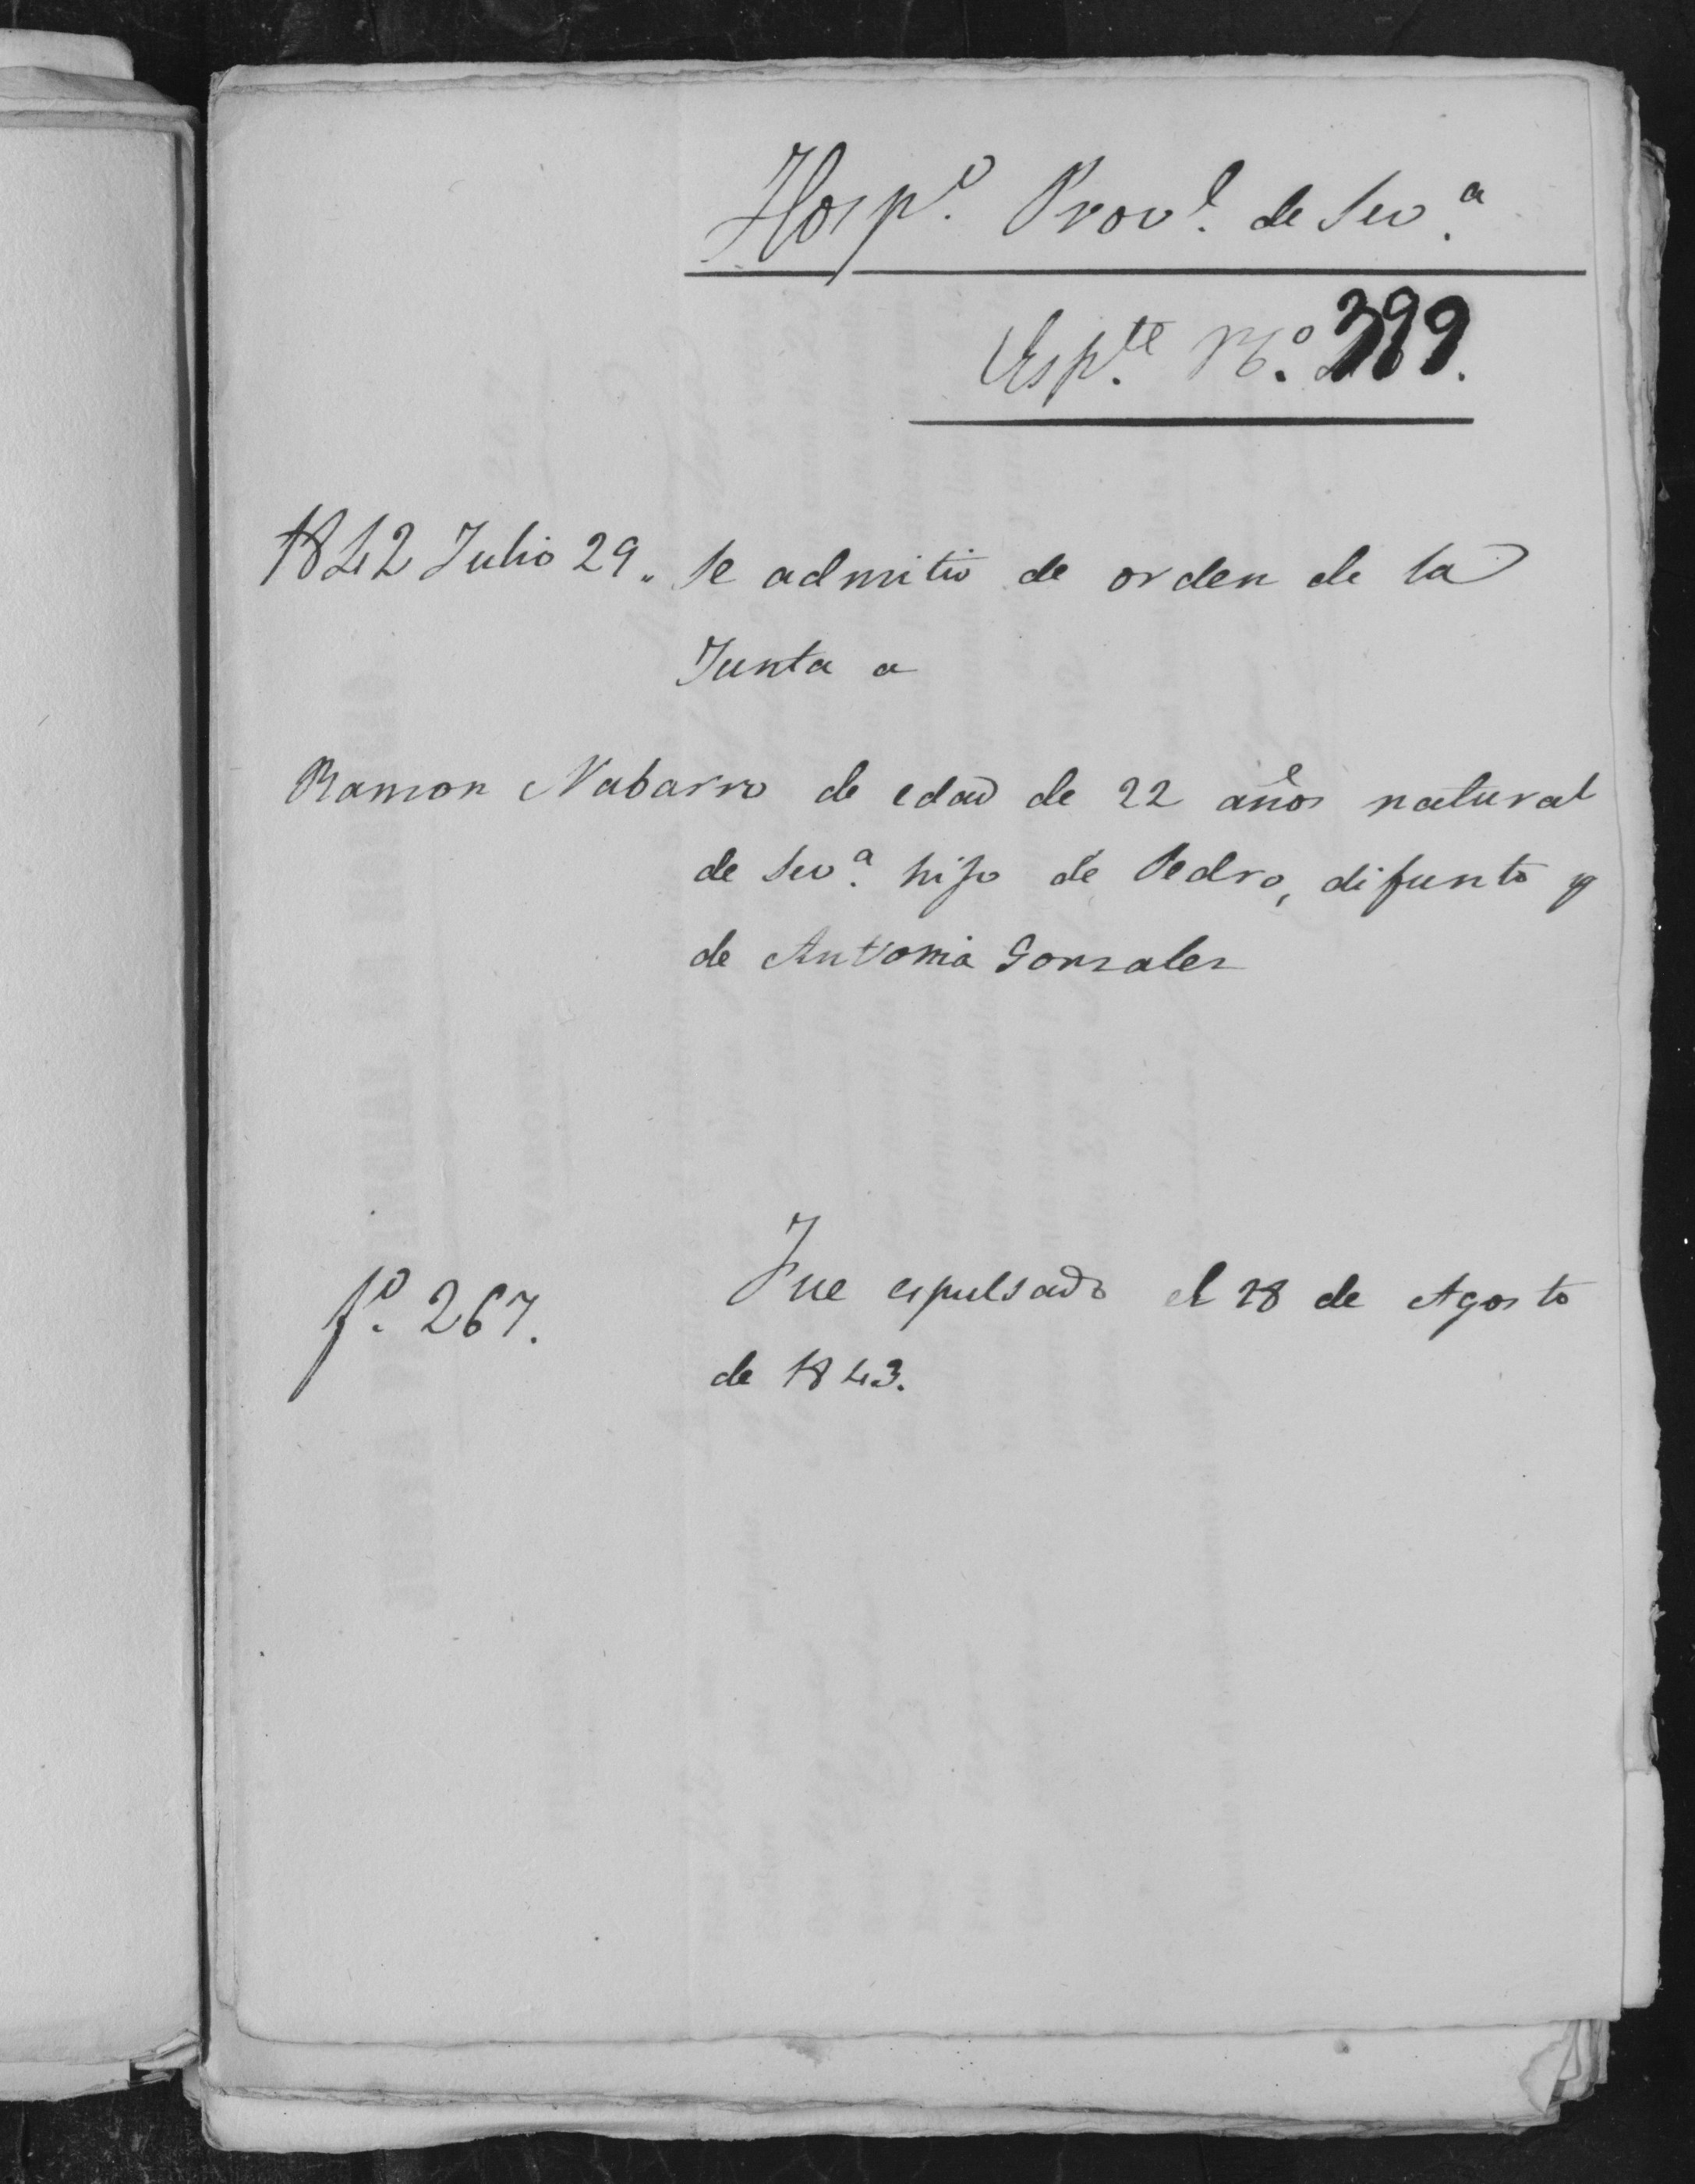 Hosp.º Prov.l de Sev.a
Esp.te N.º 399.
1842 Julio 29. Se admitio de orden de la
Junta a
Ramon Nabarro de edad de 22 años natural
de Sev.a hijo de Pedro, difunto y
de Antonia Gonzales
f.º 267.
Fue espulsado el 28 de Agosto
de 1843.